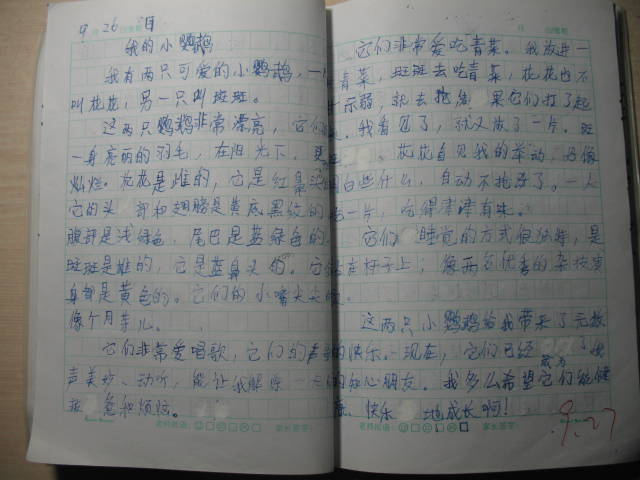 9 26 日
我的小鹦鹉
我有两只可爱的小鹦鹉，一
叫花花，另一只叫斑斑。
这两只鹦鹉非常漂亮，它们
一身亮丽的羽毛，在阳光下，更
灿烂。花花是雌的，它是红鼻头
它的头部和翅膀是黄底黑纹的
腹部是浅绿色，尾巴是蓝绿色的，
斑斑是雄的，它是蓝鼻头的。它
身都是黄色的。它们的小嘴尖尖
像个月芽儿。
它们非常爱唱歌，它们的声
声美妙、动听，能让我解除
疲惫和烦恼。
老师批语： 家长签字：
它们非常爱吃青菜。我放进一
青菜，斑斑去吃青菜，花花也不
示弱，就去抢 果它们打了起
我看见了，就又放了一片。斑
花花自见我的举动，好像
明白些什么，自动不抢了。一人
一片，吃得津津有味。
它们睡觉的方式很独特，是
在杆子上；像两名优秀的杂技演
这两只小鹦鹉给我带来了无数
的快乐。现在，它们已经成为了我
的知心朋友。我多么希望它们能健
康、快乐地成长啊！
老师批语： 家长签字：
9.27